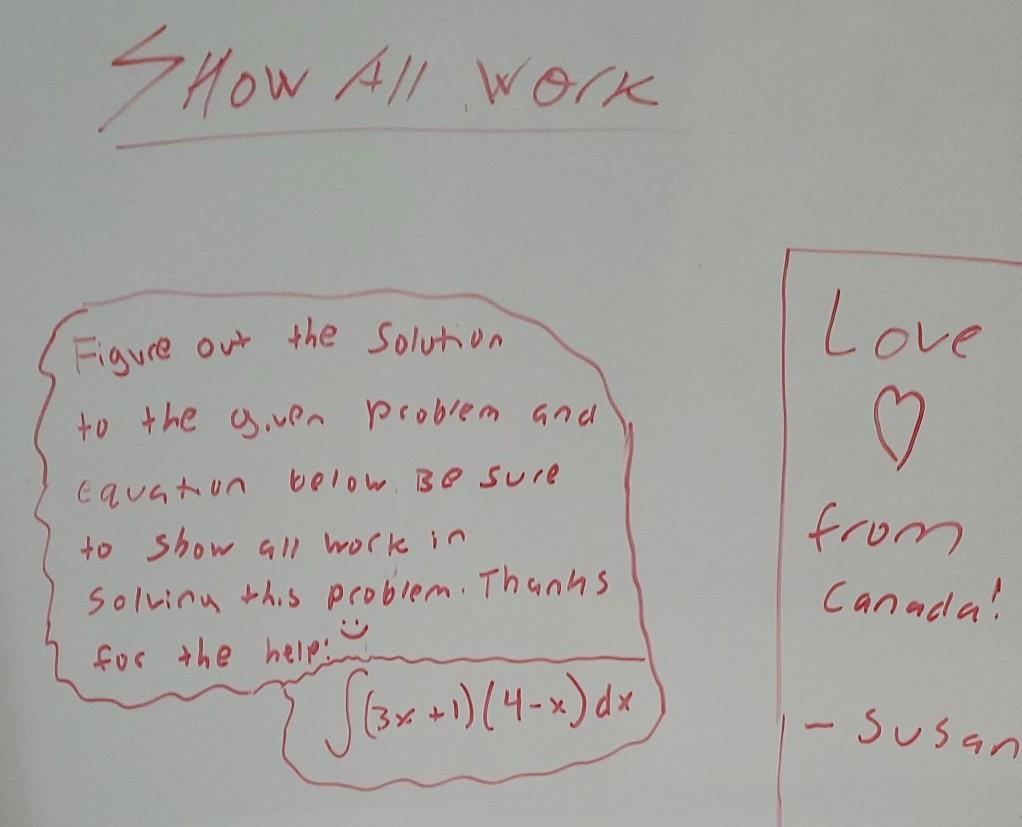 SHOW All WORK
Figure out the Solution
to the given problem and
Equation below. BE sure
to show all work in
Solving this problem. Thanks
for the help! :)
∫(3x+1)(4-x)dx
Love
♡
from
Canada!
- Susan